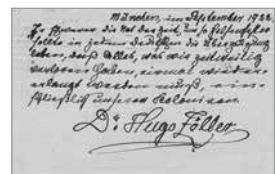 München, im September 1922.
Je schwerer die Not der Zeit, um so felsenfester
sollte in jedem Deutschen die Überzeugung
leben, daß Alles, was wir zeitweilig
verloren haben, einmal wieder
erlangt werden muß, ein-
schließlich unserer Kolonien.
Dr. Hugo Zöller